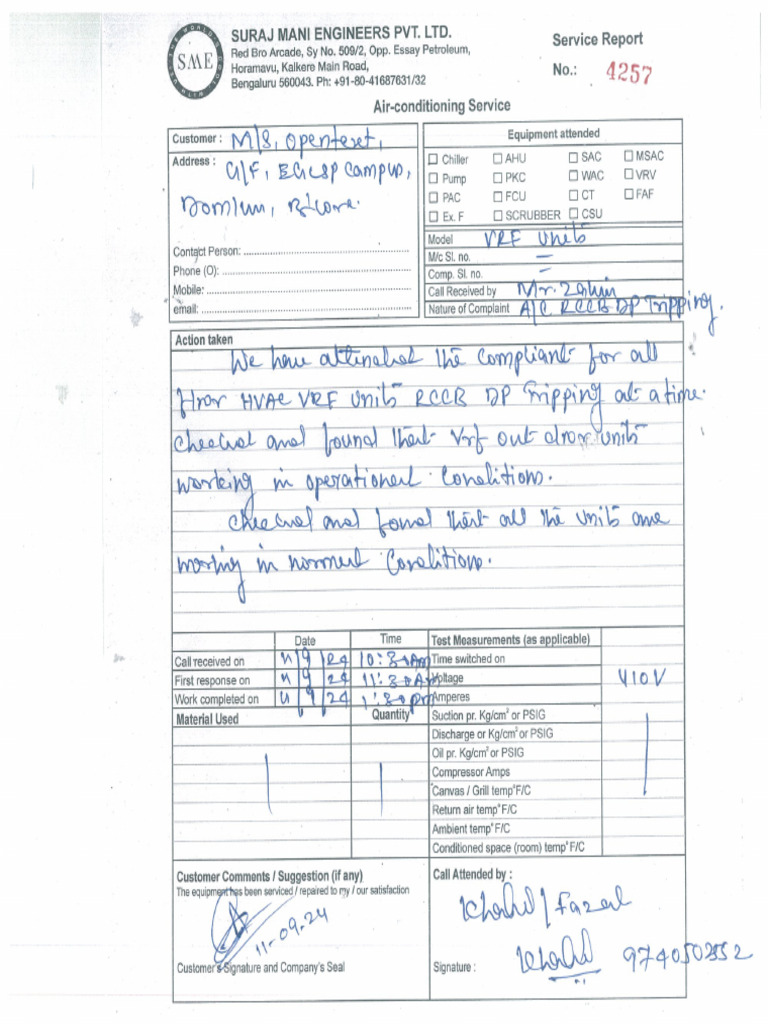 SURAJ MANI ENGINEERS PVT. LTD.
Red Bro Arcade, Sy No. 509/2, Opp. Essay Petroleum,
Horamavu, Kalkere Main Road,
Bengaluru 560043. Ph: +91-80-41687631/32
SME
Service Report
No.: 4257
Air-conditioning Service
Customer : M/S, opentext,
Address : G/F, EGLSP Campus,
Domlur, B'lore.
Contact Person:
Phone (O):
Mobile:
email:
Equipment attended
Chiller AHU SAC MSAC
Pump PKC WAC VRV
PAC FCU CT FAF
Ex. F SCRUBBER CSU
Model VRF Units
M/c Sl. no. =
Comp. Sl. no. =
Call Received by Mr.
Nature of Complaint A/C RCCB DP Tripping.
Action taken
We have attended the compliant for all
HVAC VRF units RCCB DP Tripping at a time.
checked and found that Vrf out door units
working in operational Conditions.
checked and found that all the units are
working in normal Conditions.
Date Time
Call received on 11 9 24 10:30Am
First response on 11 9 24 11:30Am
Work completed on 11 9 24 1:30pm
Material Used Quantity
Test Measurements (as applicable)
Time switched on
Voltage 410V
Amperes
Suction pr. Kg/cm² or PSIG
Discharge or Kg/cm² or PSIG
Oil pr. Kg/cm² or PSIG
Compressor Amps
Canvas / Grill temp°F/C
Return air temp°F/C
Ambient temp°F/C
Conditioned space (room) temp°F/C
Customer Comments / Suggestion (if any)
The equipment has been serviced / repaired to my / our satisfaction
11-09-24
Customer's Signature and Company's Seal
Call Attended by :
Khalid / Fazal
Signature : Khalid